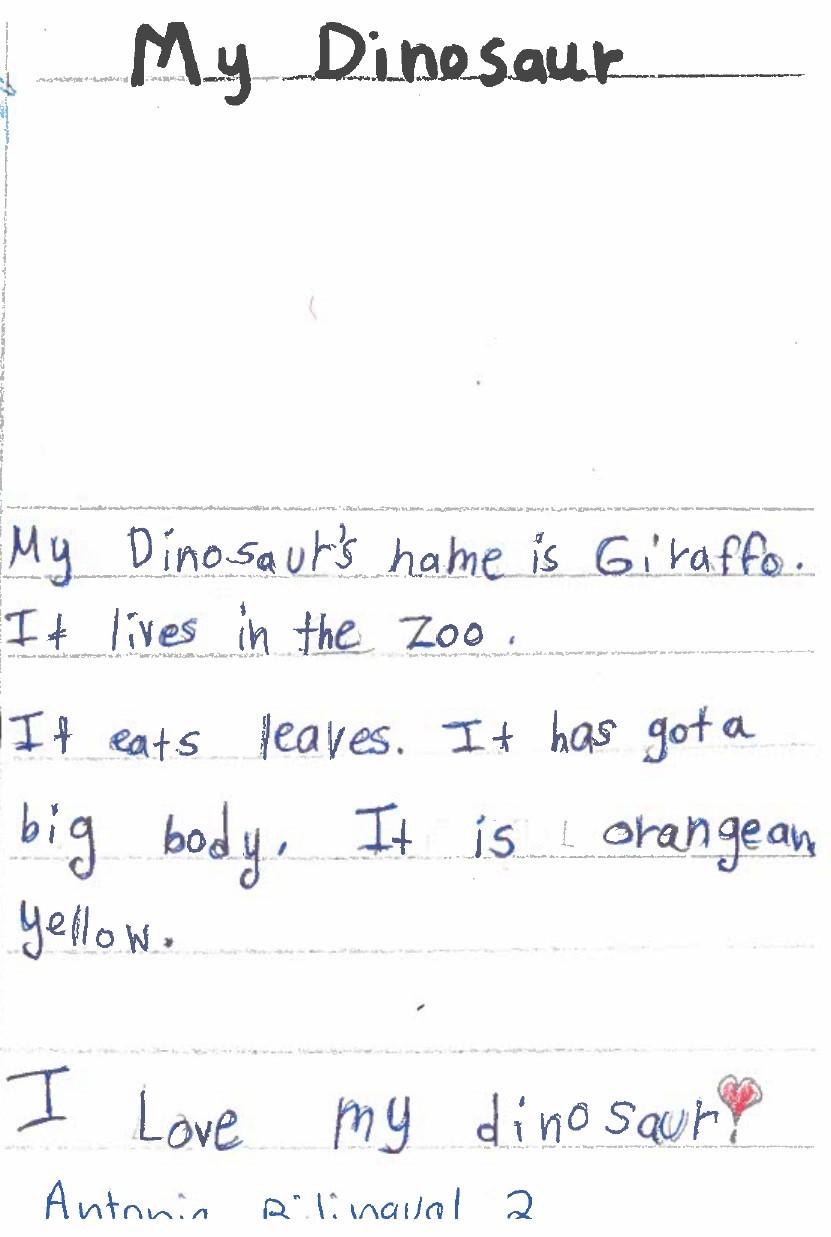 My Dinosaur
My Dinosaur's name is Giraffo.
It lives in the Zoo.
It eats leaves. It has got a
big body. It is orange an
yellow.
I Love my dinosaur!
Bilingual 2